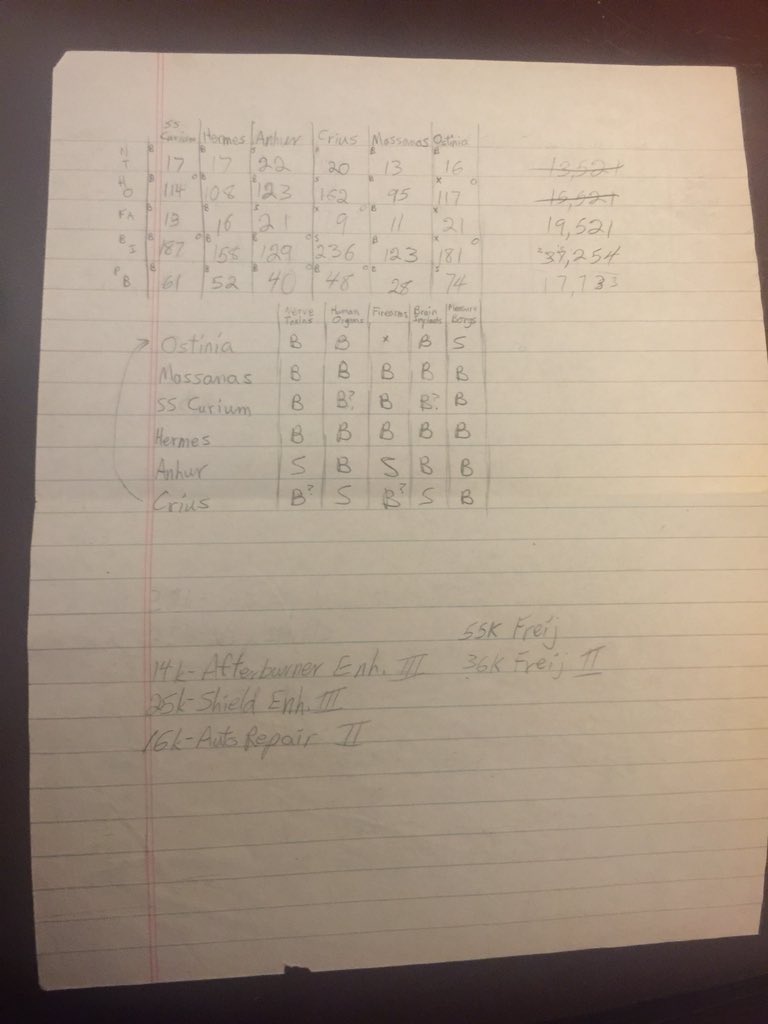 SS Curium Hermes Anhur Crius Mossanas Ostinia
NT 17 17 22 20 13 16 13,521
HO 114 108 123 162 95 117 15,521
FA 13 16 21 9 11 21 19,521
BI 187 155 129 236 123 181 37,254
PB 61 52 40 48 28 74 17,733
Nerve Human Organs Firearms Brain Implants Pleasure Borgs
Ostinia B B x B S
Mossanas B B B B B
SS Curium B B? B B? B
Hermes B B B B B
Anhur S B S B B
Crius B? S B? S B
55K Freij
14k-Afterburner Enh. III 36K Freij II
25k-Shield Enh. III
16k-Auto Repair II